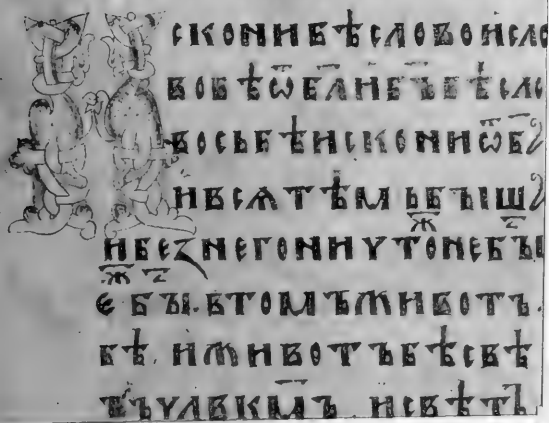 ИСКОНИБѢСЛОВОИСЛО
ВОБѢѾБА҃ИБЪ҃БѢСЛО
ВОСЬБѢИСКОНИѾБ҃А
ИВСѦТѢМЬБꙐША
Ж Z
ИБЕZНЕГОНИЧТОНЕБꙐ
Ж Z
Є БꙐ. ВТОМЪЖИВОТЪ.
БѢ. ИЖИВОТЪБѢСВѢ
ТЪЧЛВКМ҃Ъ ИСВѢТЪ